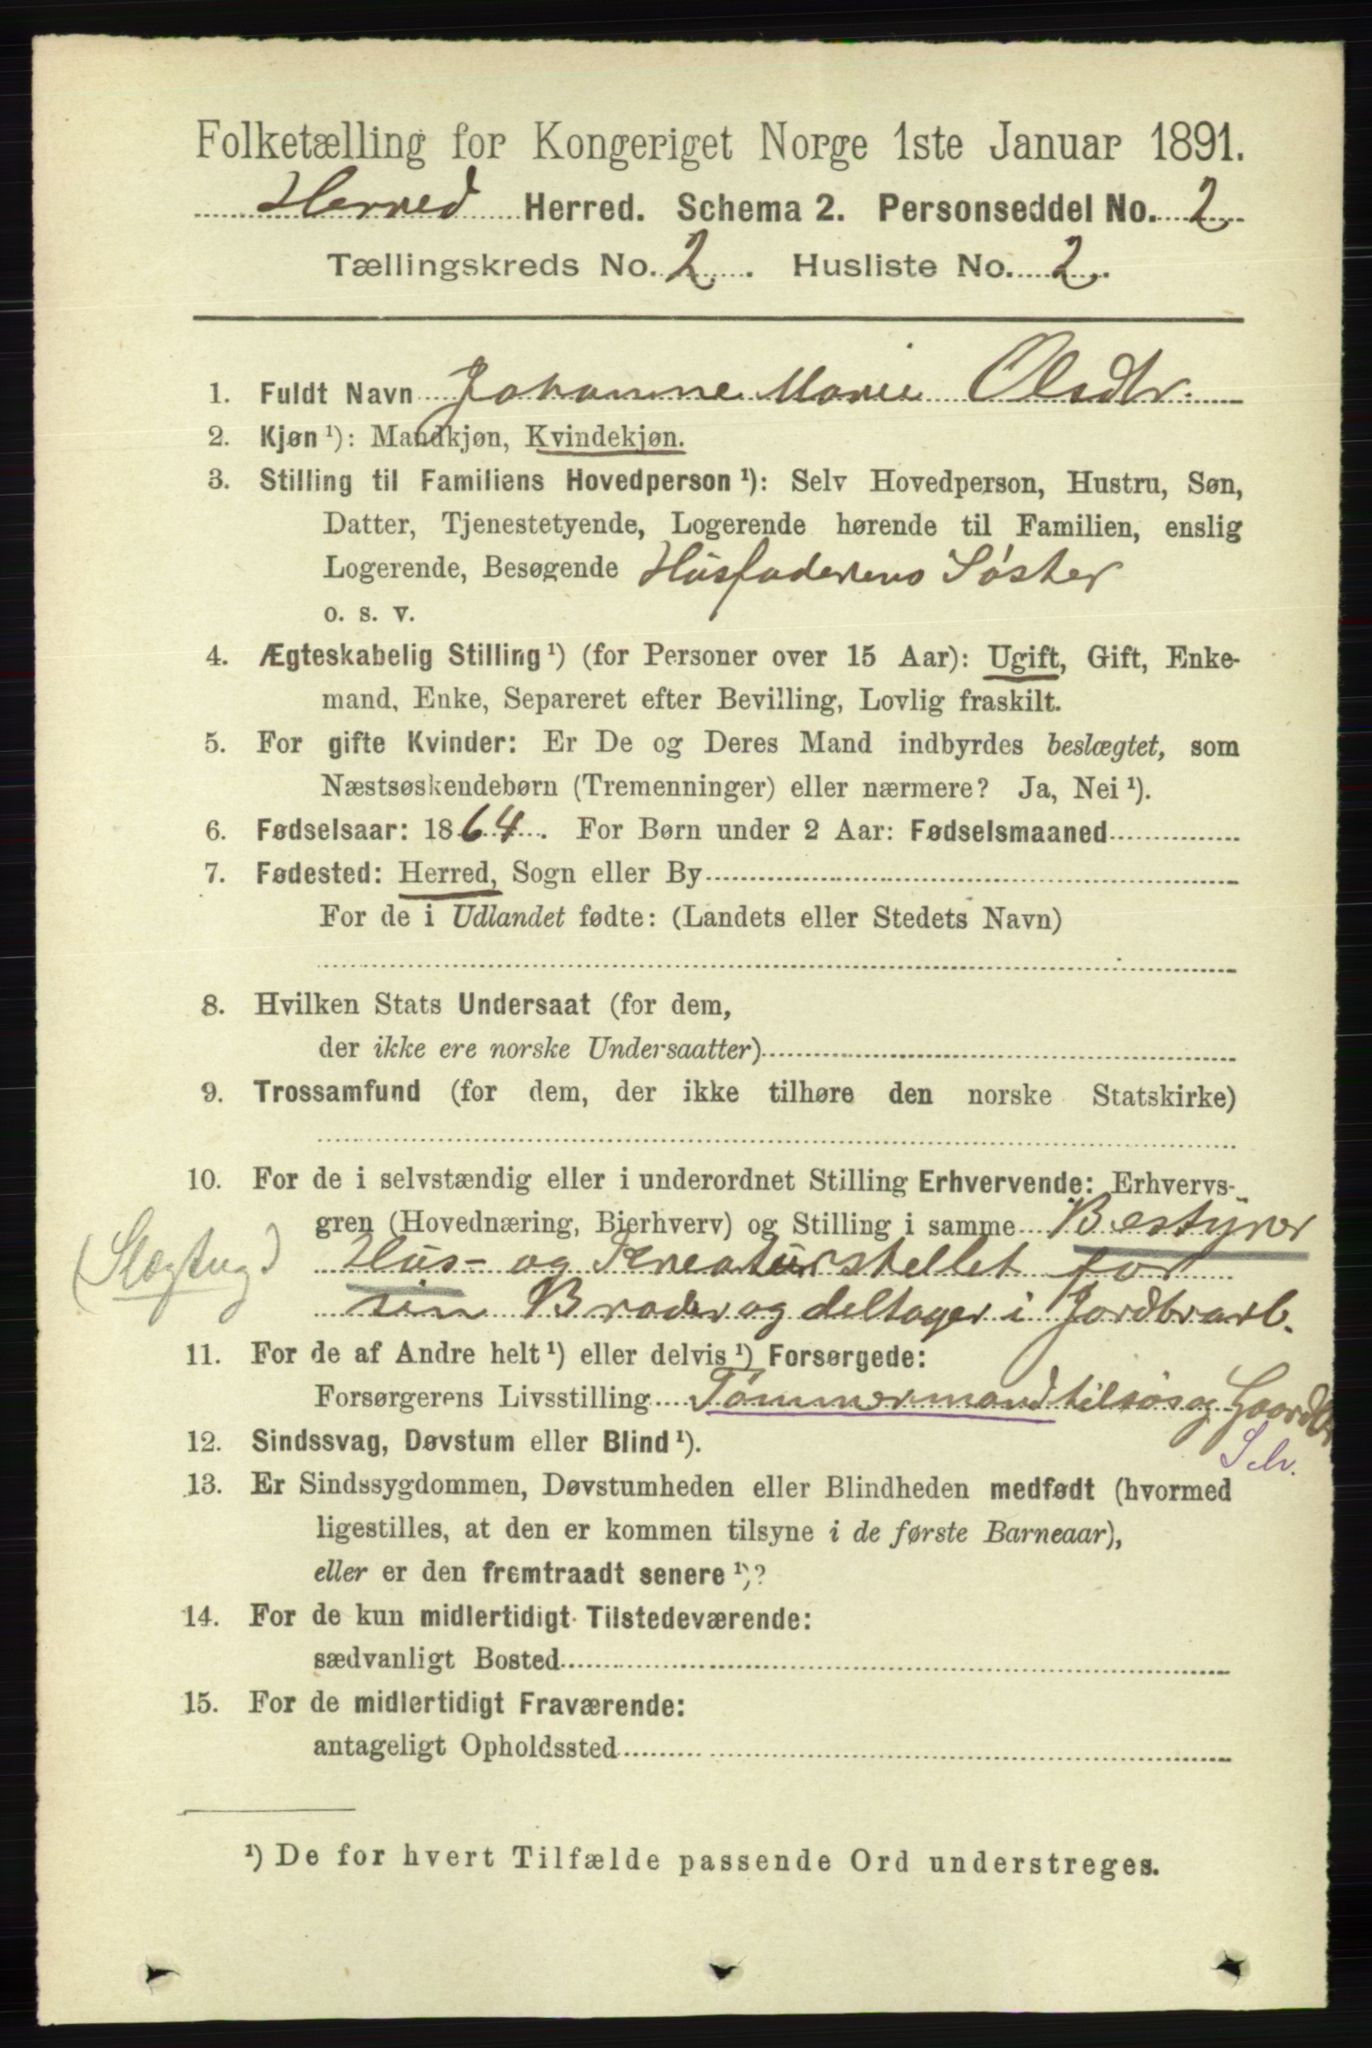 Folketælling for Kongeriget Norge 1ste Januar 1891.
Herred Herred. Schema 2. Personseddel No. 2
Tællingskreds No. 2. Husliste No. 2.
1. Fuldt Navn Johanne Marie Olsdtr.
2. Kjøn ¹): Mandkjøn, Kvindekjøn.
3. Stilling til Familiens Hovedperson ¹): Selv Hovedperson, Hustru, Søn,
Datter, Tjenestetyende, Logerende hørende til Familien, enslig
Logerende, Besøgende Husfaderens Søster
o. s. v.
4. Ægteskabelig Stilling ¹) (for Personer over 15 Aar): Ugift, Gift, Enke-
mand, Enke, Separeret efter Bevilling, Lovlig fraskilt.
5. For gifte Kvinder: Er De og Deres Mand indbyrdes beslægtet, som
Næstsøskendebørn (Tremenninger) eller nærmere? Ja, Nei ¹).
6. Fødselsaar: 1864. For Børn under 2 Aar: Fødselsmaaned
7. Fødested: Herred, Sogn eller By
For de i Udlandet fødte: (Landets eller Stedets Navn)
8. Hvilken Stats Undersaat (for dem,
der ikke ere norske Undersaatter)
9. Trossamfund (for dem, der ikke tilhøre den norske Statskirke)
10. For de i selvstændig eller i underordnet Stilling Erhvervende: Erhvervs-
gren (Hovednæring, Bierhverv) og Stilling i samme Bestyrer
(Slægtug) Hus- og Kreaturstellet for
sin Broder og deltager i Jordbrarb.
11. For de af Andre helt ¹) eller delvis ¹) Forsørgede:
Forsørgerens Livsstilling Tømmermand tilsøs og
12. Sindssvag, Døvstum eller Blind ¹).
Selv.
13. Er Sindssygdommen, Døvstumheden eller Blindheden medfødt (hvormed
ligestilles, at den er kommen tilsyne i de første Barneaar),
eller er den fremtraadt senere ¹)?
14. For de kun midlertidigt Tilstedeværende:
sædvanligt Bosted
15. For de midlertidigt Fraværende:
antageligt Opholdssted
¹) De for hvert Tilfælde passende Ord understreges.